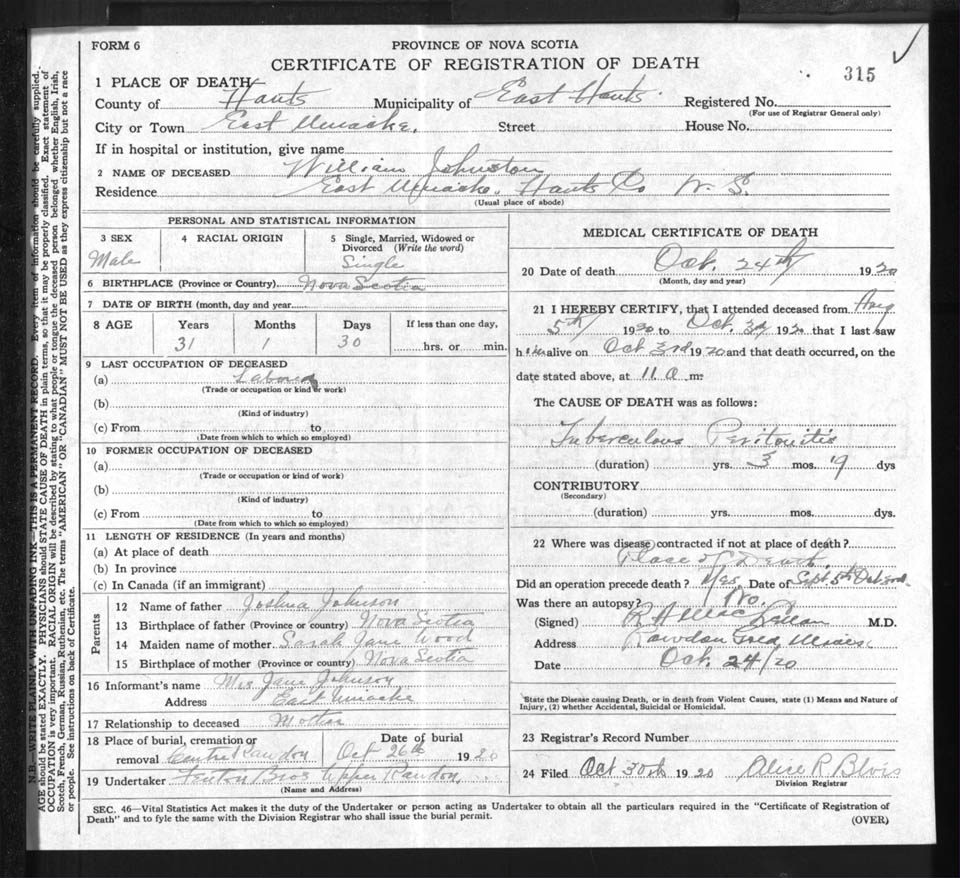 FORM 6
PROVINCE OF NOVA SCOTIA
CERTIFICATE OF REGISTRATION OF DEATH
315
1 PLACE OF DEATH
County of Hants Municipality of East Hants Registered No.
(For use of Registrar General only)
City or Town East Uniacke. Street House No.
If in hospital or institution, give name
2 NAME OF DECEASED William Johnston
Residence East Uniacke. Hants Co N. S.
(Usual place of abode)
PERSONAL AND STATISTICAL INFORMATION
3 SEX 4 RACIAL ORIGIN 5 Single, Married, Widowed or
Divorced (Write the word)
Male Single
6 BIRTHPLACE (Province or Country) Nova Scotia
7 DATE OF BIRTH (month, day and year)
8 AGE Years Months Days If less than one day,
31 1 30 hrs. or min.
9 LAST OCCUPATION OF DECEASED
(a) Laborer
(Trade or occupation or kind of work)
(b)
(Kind of industry)
(c) From to
(Date from which to which so employed)
10 FORMER OCCUPATION OF DECEASED
(a)
(Trade or occupation or kind of work)
(b)
(Kind of industry)
(c) From to
(Date from which to which so employed)
11 LENGTH OF RESIDENCE (In years and months)
(a) At place of death
(b) In province
(c) In Canada (if an immigrant)
Parents
12 Name of father Joshua Johnson
13 Birthplace of father (Province or country) Nova Scotia
14 Maiden name of mother Sarah Jane Wood
15 Birthplace of mother (Province or country) Nova Scotia
16 Informant's name Mrs Jane Johnson
Address East Uniacke
17 Relationship to deceased Mother
18 Place of burial, cremation or Date of burial
removal Centre Rawdon Oct 26th 1920
19 Undertaker Fenton Bros Upper Rawdon
(Name and Address)
MEDICAL CERTIFICATE OF DEATH
20 Date of death Oct. 24th 1920
(Month, day and year)
21 I HEREBY CERTIFY, that I attended deceased from Aug
5th 1920 to Oct. 3rd 1920 that I last saw
him alive on Oct 3rd 1920 and that death occurred, on the
date stated above, at 11 a m.
The CAUSE OF DEATH was as follows:
Tuberculous Peritonitis
(duration) yrs. 3 mos. 19 dys
CONTRIBUTORY
(Secondary)
(duration) yrs. mos. dys.
22 Where was disease contracted if not at place of death?
Place of Death.
Did an operation precede death? Yes Date of Sept. 5th Oct 3rd
Was there an autopsy? No.
(Signed) R A M.D.
Address Rawdon Gold Mines
Date Oct. 24/20
State the Disease causing Death, or in death from Violent Causes, state (1) Means and Nature of
Injury, (2) whether Accidental, Suicidal or Homicidal.
23 Registrar's Record Number
24 Filed Oct 30th 1920 Alice R Blois
Division Registrar
SEC. 46—Vital Statistics Act makes it the duty of the Undertaker or person acting as Undertaker to obtain all the particulars required in the "Certificate of Registration of
Death" and to fyle the same with the Division Registrar who shall issue the burial permit.
(OVER)
N.B.—WRITE PLAINLY WITH UNFADING INK—THIS IS A PERMANENT RECORD. Every item of information should be carefully supplied.
AGE should be stated EXACTLY. PHYSICIANS should STATE CAUSE OF DEATH in plain terms, so that it may be properly classified. Exact statement of
OCCUPATION is very important. RACIAL ORIGIN will be described by stating to what people or tongue the deceased person belonged whether English, Irish,
Scotch, French, German, Russian, Ruthenian, etc. The terms "AMERICAN" OR "CANADIAN" MUST NOT BE USED as they express citizenship but not a race
or people. See instructions on back of Certificate.